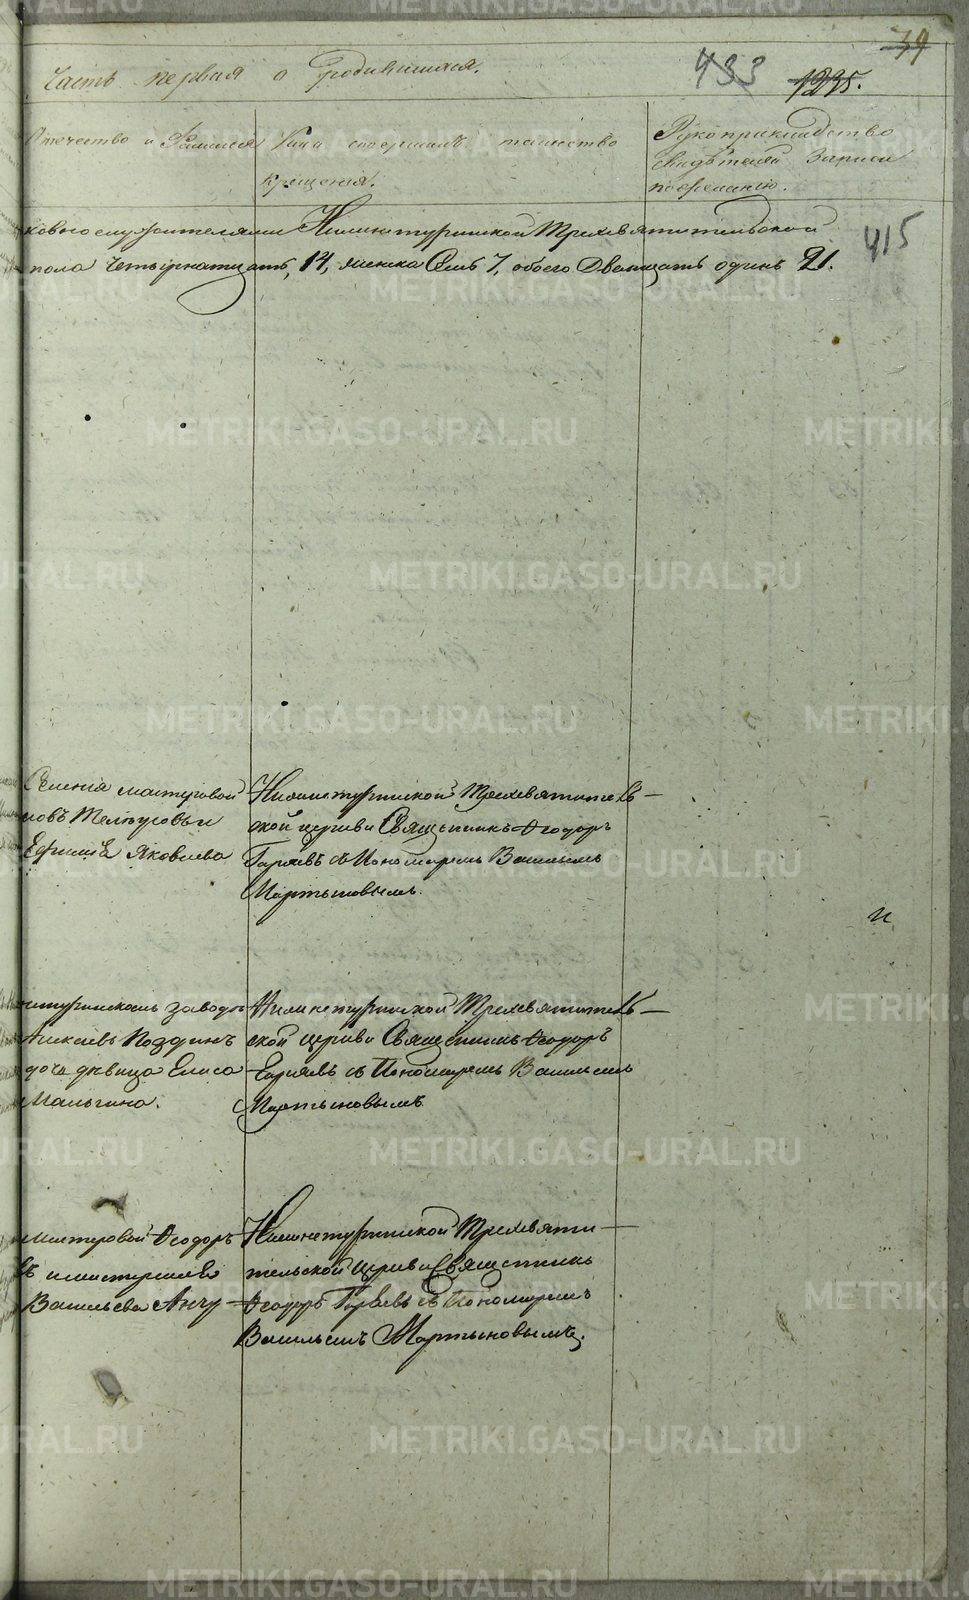 39
Часть первая о родившихся. 433 1235.
Отечество и Фамилiя
Кто совершалъ таинство
крещенiя.
Рукоприкладство
свидѣтелей записи
по желанiю.
ковнослужителями Нижнетуринской Трехсвятительской 415
пола Четырнатцать, 14, женска Семь 7, обоего Дватцать одинъ 21.
мастеровой
новъ
Ефимiя Яковлева
Нижнетуринской Трехсвятитель-
ской церкви Священникъ Ѳеодоръ
Гаряевъ съ Пономаремъ Васильемъ
Мартыновымъ.
и
туринскаго завода
Поздинъ
дочь дѣвица Елиса
Мальгина.
Нижнетуринской Трехсвятитель-
ской церкви Священникъ Ѳеодоръ
Гаряевъ съ Пономаремъ Васильемъ
Мартыновымъ
мастеровой Ѳеодоръ
Васильева
Нижнетуринской Трехсвяти-
тельской Церкви Священникъ
Ѳеодоръ Гаряевъ съ Пономаремъ
Васильемъ Мартыновымъ.
METRIKI.GASO-URAL.RU